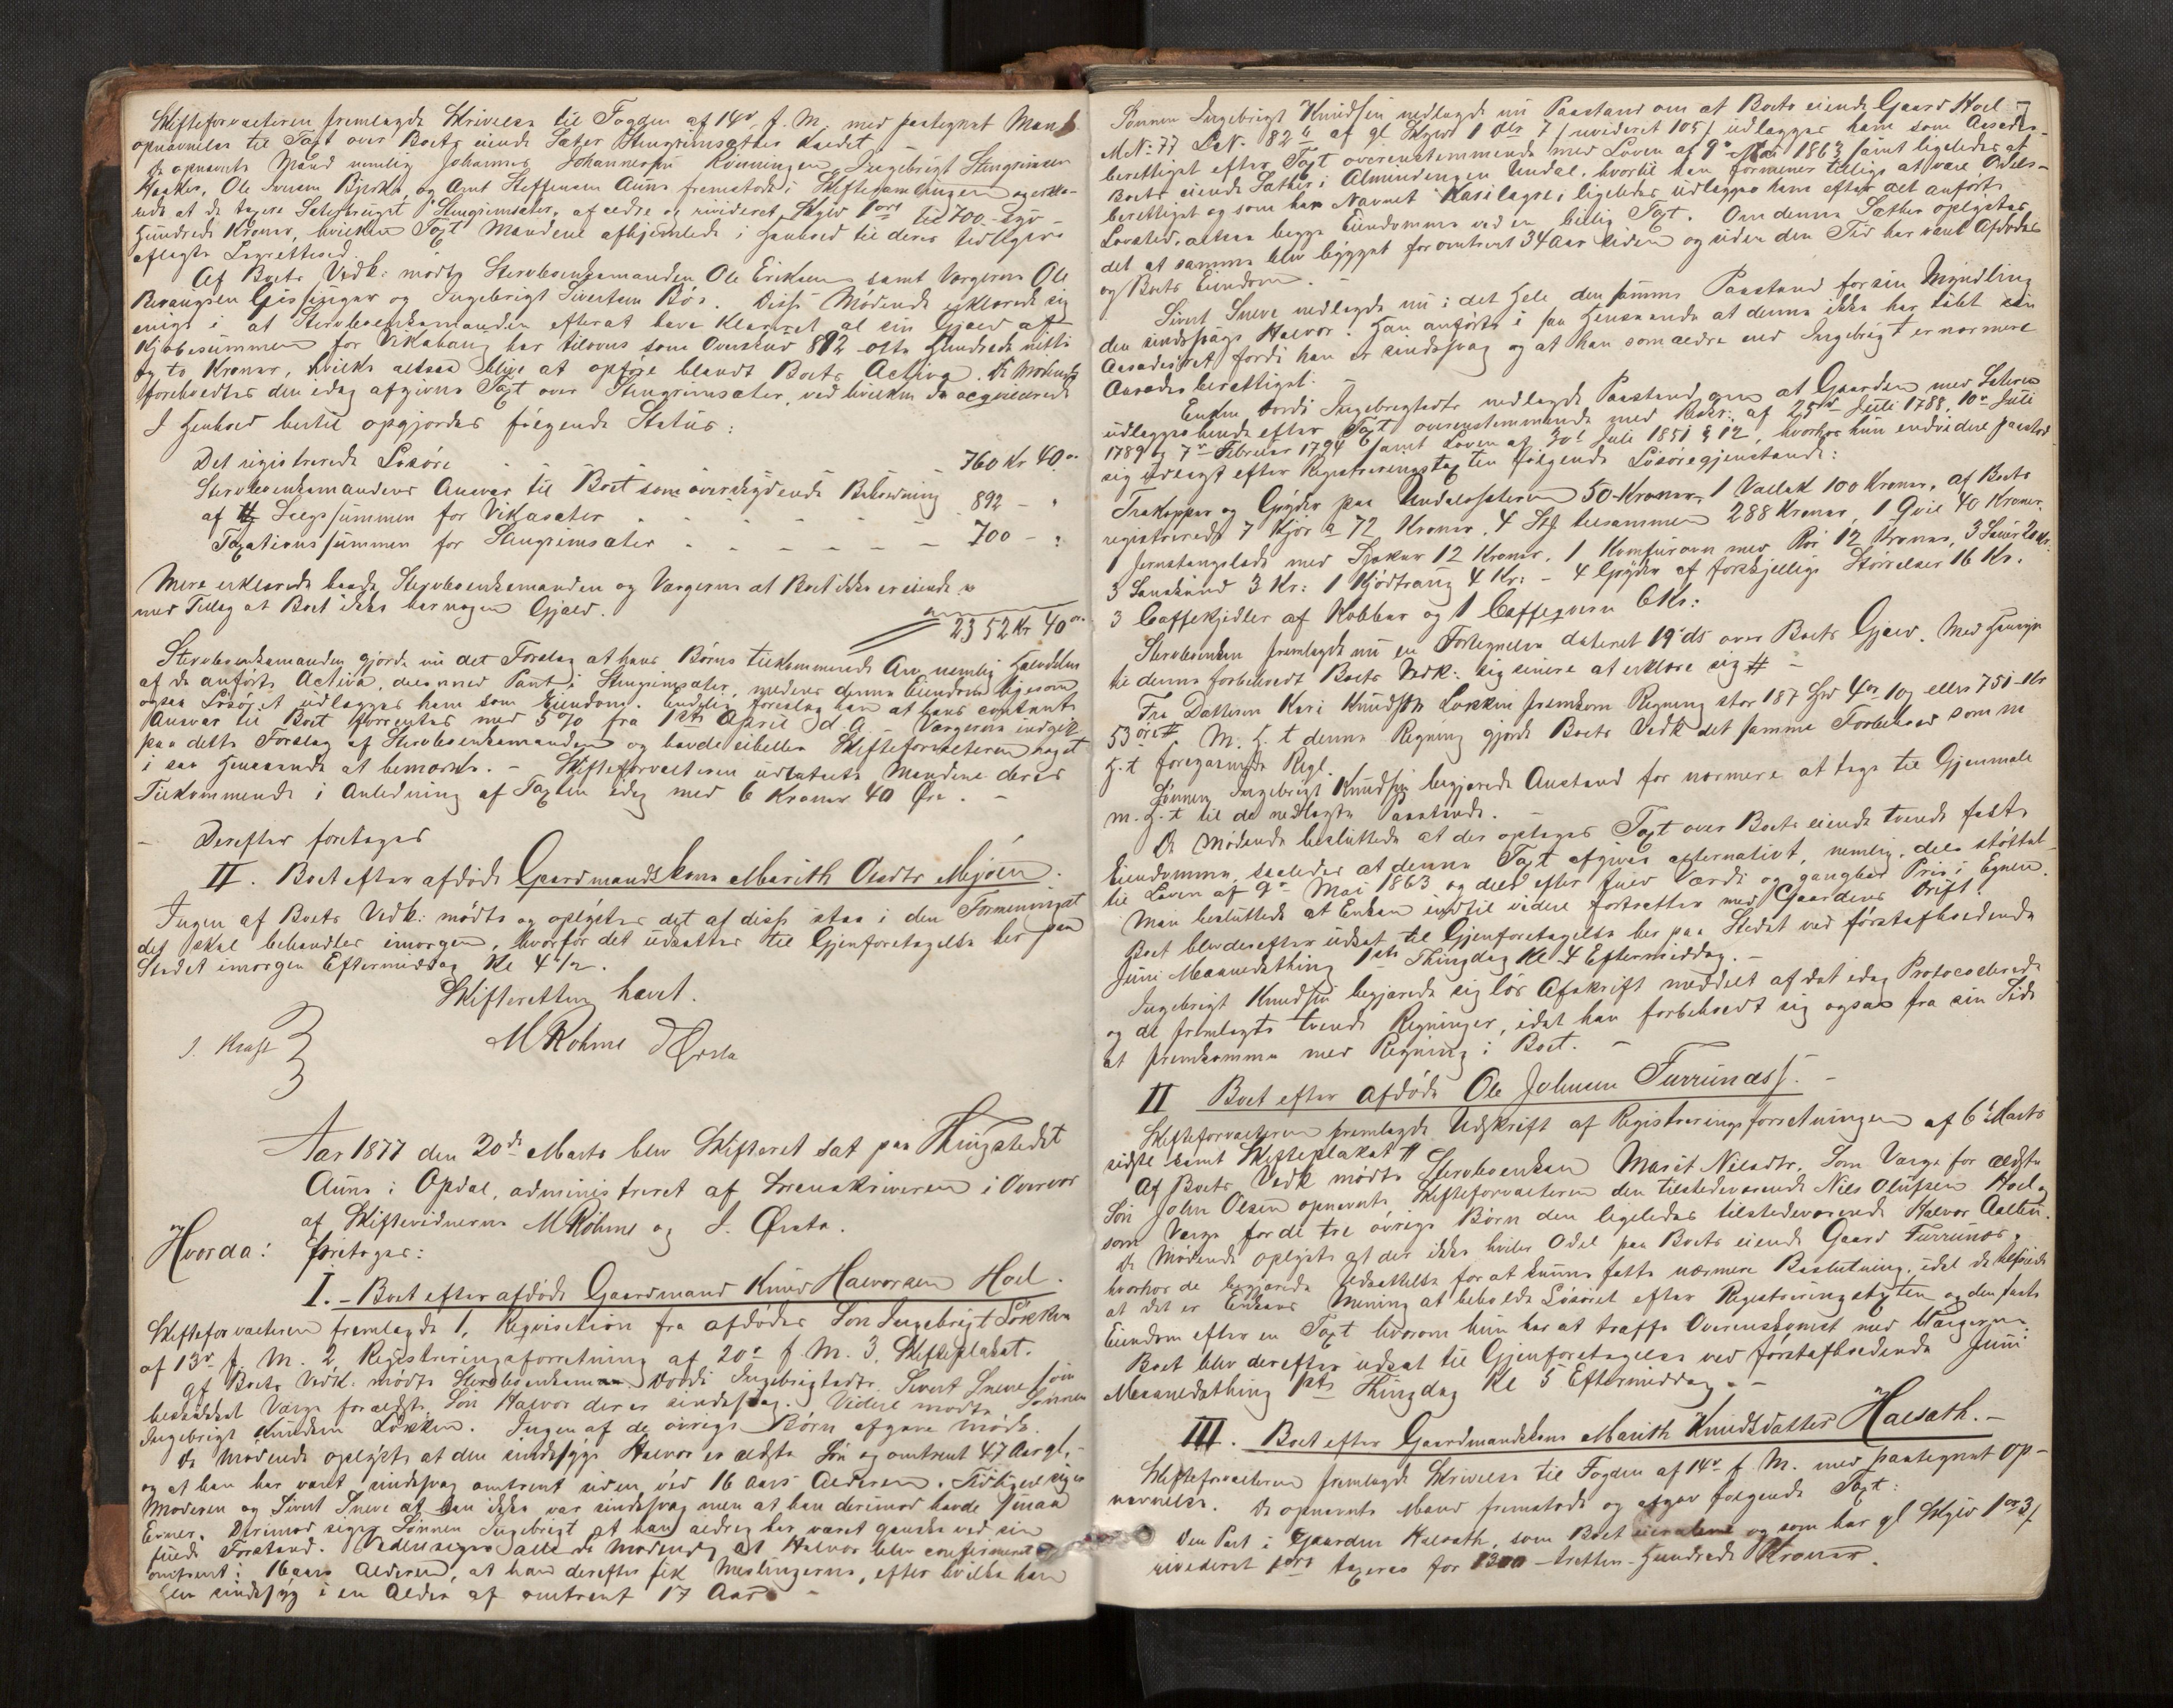 Skifteforvalteren fremlagde Skrivelse til Fogden af 14de f. M. med paategnet Mands-
opnævnelse til Taxt over Boets eiende Sæter Stengrimsæter kaldet.
De opnævnte Mænd nemlig Johannes Johannesen Rønningen, Ingebrigt Stengrimsen
Haaker, Ole Iversen Bjerke, og Arnt Steffensen Aune fremstod i Skiftesamlingen og erklæ-
rede at de taxere Sæterbruget Stengrimsæter, af ældre og revideret Skyld 1 ort til 700 - syv-
Hundrede Kroner, hvilken Taxt Mændene afhjemlede i Henhold til deres tidligere
aflagte Lagretteed.
Af Boets Vedk: mødte Stervboenkemanden Ole Eriksen samt Værgerne Ole
Gissinger og Ingebrigt Sivertsen Bøe. Disse Mødende erklærede sig
enige i at Stervboenkemanden efterat have klareret al sin Gjæld af
Kjøbesummen for Vikahaug har tilovers som Overskud 892 - otte Hundrede nitti
og to Kroner, hvilke altsaa blive at opføre blandt Boets Activa. De Mødende
foreholdtes den idag afgivne Taxt over Stengrimsæter, ved hvilken de acquiescerede
I Henhold hertil opgjordes følgende Status:
Det registrerede Løsøre - - - - 760 Kr 40 ør
Stervboenkemandens Ansvar til Boet som overskydende Beholdning
af Salgssummen for Vikasæter - - - - - 892 - "
Taxationssummen for Stengrimsæter - - - - - 700 - "
Mere erklærede baade Stervboenkemanden og Værgerne at Boet ikke er eiende
med Tillæg at Boet ikke har nogen Gjæld.
2352 Kr 40 ør
Stervboenkemanden gjorde nu det Forslag at hans Børns tilkommende Arv nemlig Halvdelen
af de anførte Activa, deels med Pant i Stengrimsæter, medens denne Eiendom ligesom
ogsaa Løsøret udlægges ham som Eiendom. Endelig foreslog han at hans contante
Ansvar til Boet forrentes med 5 % fra 1ste April d. A. - Værgerne indgik
paa dette Forslag af Stervboenkemanden og havde eiheller Skifteforvalteren noget
i saa Henseende at bemærke. - Skifteforvalteren udbetalte Mændene deres
Tilkommende i Anledning af Taxten idag med 6 Kroner 40 Øre. -
- Derefter foretages
II. Boet efter afdøde Gaardmandskone Marith Olsdtr Mjøen.
Ingen af Boets Vedk: mødte og oplystes det at disse staa i den Formening at
det skal behandles imorgen, hvorfor det udsættes til Gjenforetagelse her paa
Stedet imorgen Eftermiddag Kl 4 1/2.
Skifteretten hævet.
J. Kraft
M Rohme J Ørsta
Aar 1877 den 20de Marts blev Skifteret sat paa Thingstedet
Aune i Opdal, administreret af Sorenskriveren i Overvær
af Skiftevidnerne M Rohme og J. Ørsta.
Hvorda: foretoges:
I. - Boet efter afdøde Gaardmand Knud Halvorsen Hoel.
Skifteforvalteren fremlagde 1, Reqvisition fra afdødes Søn Ingebrigt Løkken
af 13de f. M. 2, Registreringsforretning af 20de f. M. 3, Skifteplakat.
Af Boets Vedk: mødte Stervboenken Dordi Ingebrigtsdtr. Sivert Sneve som
beskikket Værge for ældste Søn Halvor der er sindssvag. Videre mødte Sønnen
Ingebrigt Knudsen Løkken. Ingen af de øvrige Børn afgave Møde.
De Mødende oplyste at den sindssyge Halvor er ældste Søn og omtrent 47 Aar gl,
og at han har været sindssvag omtrent siden ved 16 Aars Alderen. siger
Moderen og Sivert Sneve at han ikke var sindssvag men at han derimod havde smaa
Evner. Derimod siger Sønnen Ingebrigt at han aldrig har været ganske ved sin
fulde Forstand. Videre siger alle de Mødende at Halvor blev confirmeret
omtrent i 16 Aars Alderen, at han derefter fik Meslingerne, efter hvilke han
blev sindssyg i en Alder af omtrent 17 Aar. -
Sønnen Ingebrigt Knudsen nedlagde nu Paastand om at Boets eiende Gaard Hoel
M.No. 77 L.No. 82 a af gl Skyld 1 Dlr 7 / revideret 105 / udlægges ham som Aasædes-
berettiget efter Taxt overenstemmende med Loven af 9de Mai 1863 samt ligeledes at
Boets eiende Sæter i Almendingen Undal, hvortil han formener tillige at være Odels-
berettiget og som har Navnet Kaselagse, ligeledes udlægges ham efter det anførte
Lovsted, altsaa begge Eiendomme ved en billig Taxt. Om denne Sæter oplystes
det at samme blev bygget for omtrent 34 Aar siden og siden den Tid har været Afdødes
og Boets Eiendom. -
Sivert Sneve nedlagde nu i det Hele den samme Paastand for sin Myndling
den sindssyge Halvor. Han anførte i saa Henseende at denne ikke har tabt sin
Aasædesret fordi han er sindssvag og at han som ældre end Ingebrigt er nærmere
Aasædesberettiget. -
Enken Dordi Ingebrigtsdtr nedlagde Paastand om at Gaarden med Sæteren
udlægges hende efter Taxt overenstemmende med Plakr: af 25de Juli 1788, 10de Juli
1789 og 7de Februar 1794 samt Loven af 30te Juli 1851 § 12, hvorhos hun endvidere paastod
sig udlagt efter Registreringstaxten følgende Løsøregjenstande:
Trækopper og Gryder paa Undalssæteren 50 Kroner, 1 Vallak 100 Kroner, af Boets
registrerede 7 Kjør a 72 Kroner, 4 Stk tilsammen 288 Kroner, 1 Qvie 40 Kroner.
1 Jernstangslæde med Skjøkur 12 Kroner, 1 Komfurovn med Rør 12 Kroner, 3 Sauer 20 Kr.
3 3 Kr: 1 Kjødtraug 4 Kr: - 4 Gryder af forskjellige Størrelser 16 Kr.
3 Caffekjedler af Kobber og 1 Caffeqvern 6 Kr:
Stervboenken fremlagde nu en Fortegnelse dateret 19de ds over Boets Gjæld. Med Hensyn
til denne forbeholdt Boets Vedk: sig senere at erklære sig # -
Fra Datteren Kari Knudsdtr Løkken fremkom Regning stor 187 Spd 4 ort 10 s eller 751 - Kr
53 øre #. M. H. t denne Regning gjorde Boets Vedk det samme Forbehold som m
H. t foregaaende Regl.
Sønnen Ingebrigt Knudsen begjærede Anstand for nærmere at tage til Gjenmæle
m. H. t til de nedlagte Paastande. -
De Mødende besluttede at der optages Taxt over Boets eiende tvende faste
Eiendomme, saaledes at denne Taxt afgives alternativt, nemlig, dels støttet
til Loven af 9de Mai 1863 og dels efter fuld Værdi og gangbar Pris i Egnen.
Man besluttede at Enken indtil videre fortsætter med Gaardens Drift.
Boet blev derefter udsat til Gjenforetagelse her paa Stedet ved førstafholdende
Juni Maanedsthing 1ste Thingdag Kl 4 Eftermiddag. -
Ingebrigt Knudsen begjærede sig løs Afskrift meddelt af det idag Protocollerede
og de fremlagte tvende Regninger, idet han forbeholdt sig ogsaa fra sin Side
at fremkomme med Regning i Boet. -
II Boet efter afdøde Ole Johnsen Furrunæss. -
Skifteforvalteren fremlagde Udskrift af Registreringsforretningen af 6te Marts
sidstl samt Skifteplakat #
Af Boets Vedk mødte Stervboenken Marit Nilsdtr. Som Værge for ældste
Søn John Olsen opnævnte Skifteforvalteren den tilstedeværende Nils Olufsen Hoel og
som Værge for de tre øvrige Børn den ligeledes tilstedeværende Halvor Aalbu.
De Mødende oplyste at der ikke hviler Odel paa Boets eiende Gaard Furrunæs,
hvorhos de begjærede Udsættelse for at kunne fatte nærmere Beslutning, idet de tilføiede
at det er Enkens Mening at beholde Løsøret efter Registreringstaxten og den faste
Eiendom efter en Taxt hvorom hun har at træffe Overenskomst med Værgerne.
Boet blev derefter udsat til Gjenforetagelse ved førstafholdende Juni
Maanedsthing 1ste Thingdag Kl 5 Eftermiddag. -
III. Boet efter Gaardmandskone Marith Knudsdatter Halsæth. -
Skifteforvalteren fremlagde Skrivelse til Fogden af 14de f. M. med paategnet Op-
nævnelse. De opnævnte Mænd fremstode og afgav følgende Taxt:
Den Part i Gaarden Halsæth, som Boet og som har gl Skyld 1 ort 3 /
revideret 1 ort taxeres for 1300 - tretten - Hundrede Kroner.